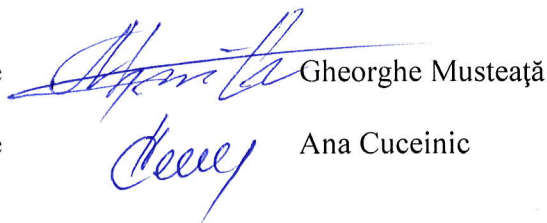 e Gheorghe Musteaţă
e Ana Cuceinic